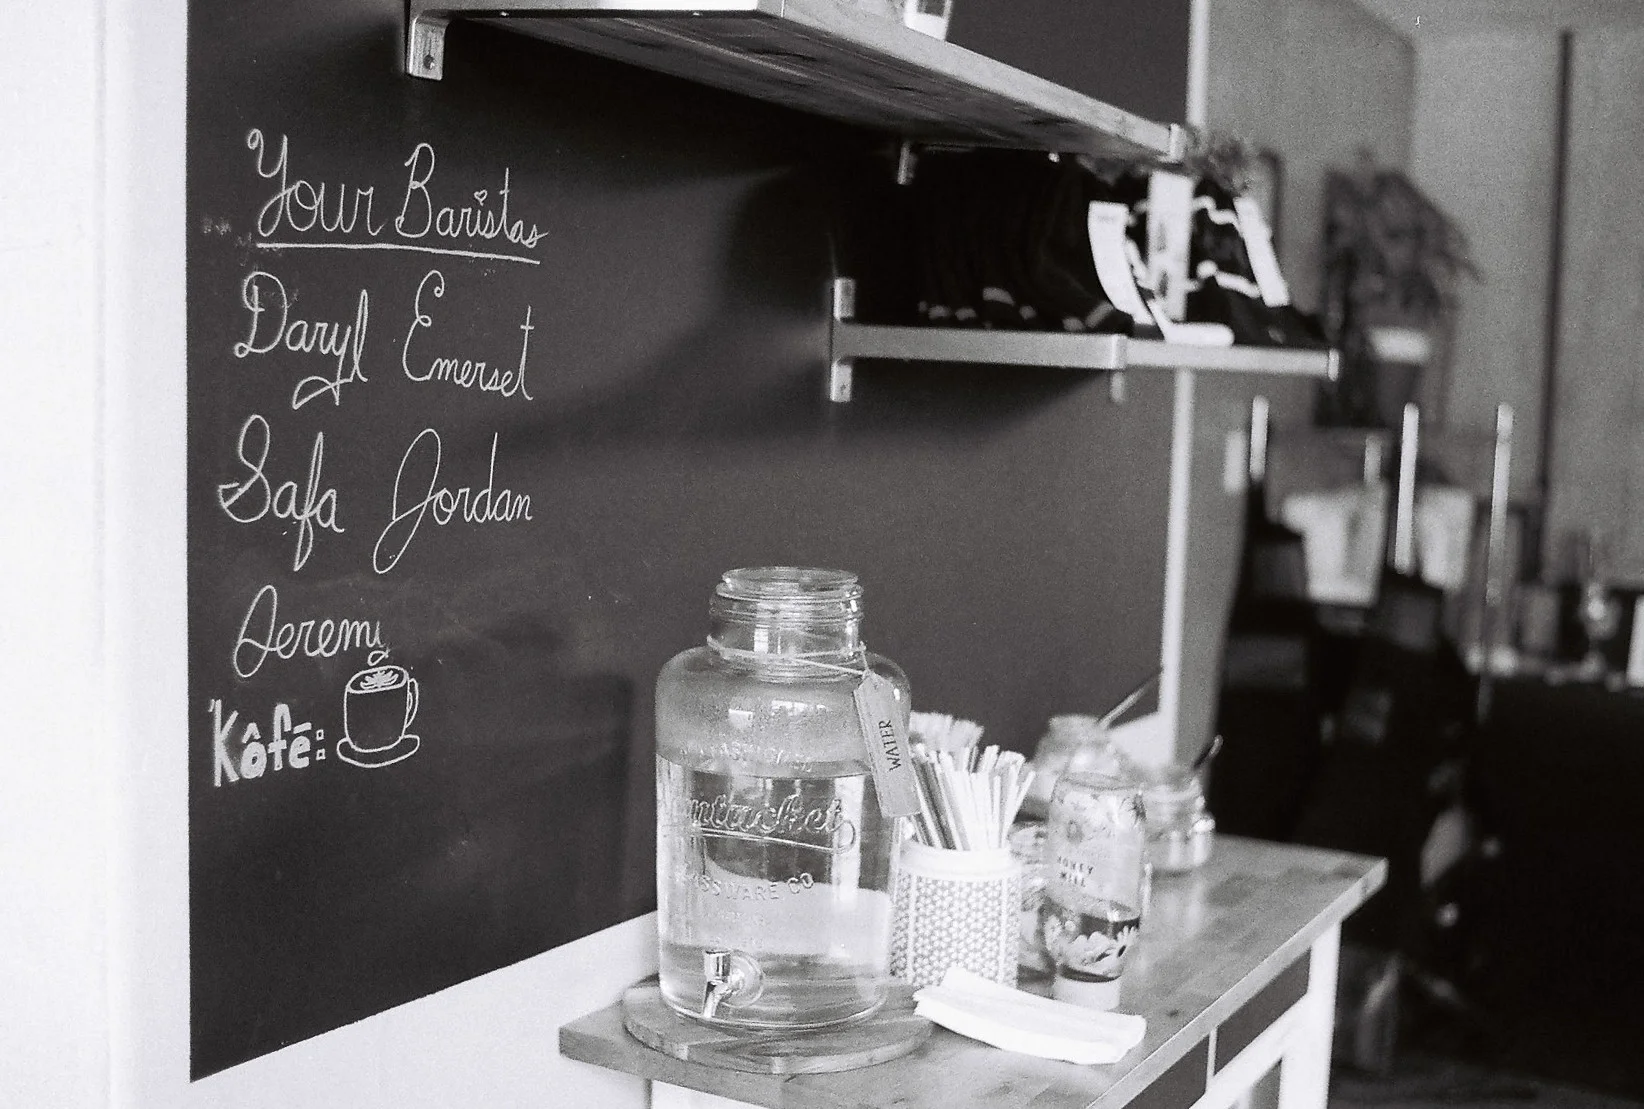 Your Baristas
Daryl Emerset
Safa Jordan
Jeremy
Kôfē:
WATER
GLASSWARE CO
HONEY